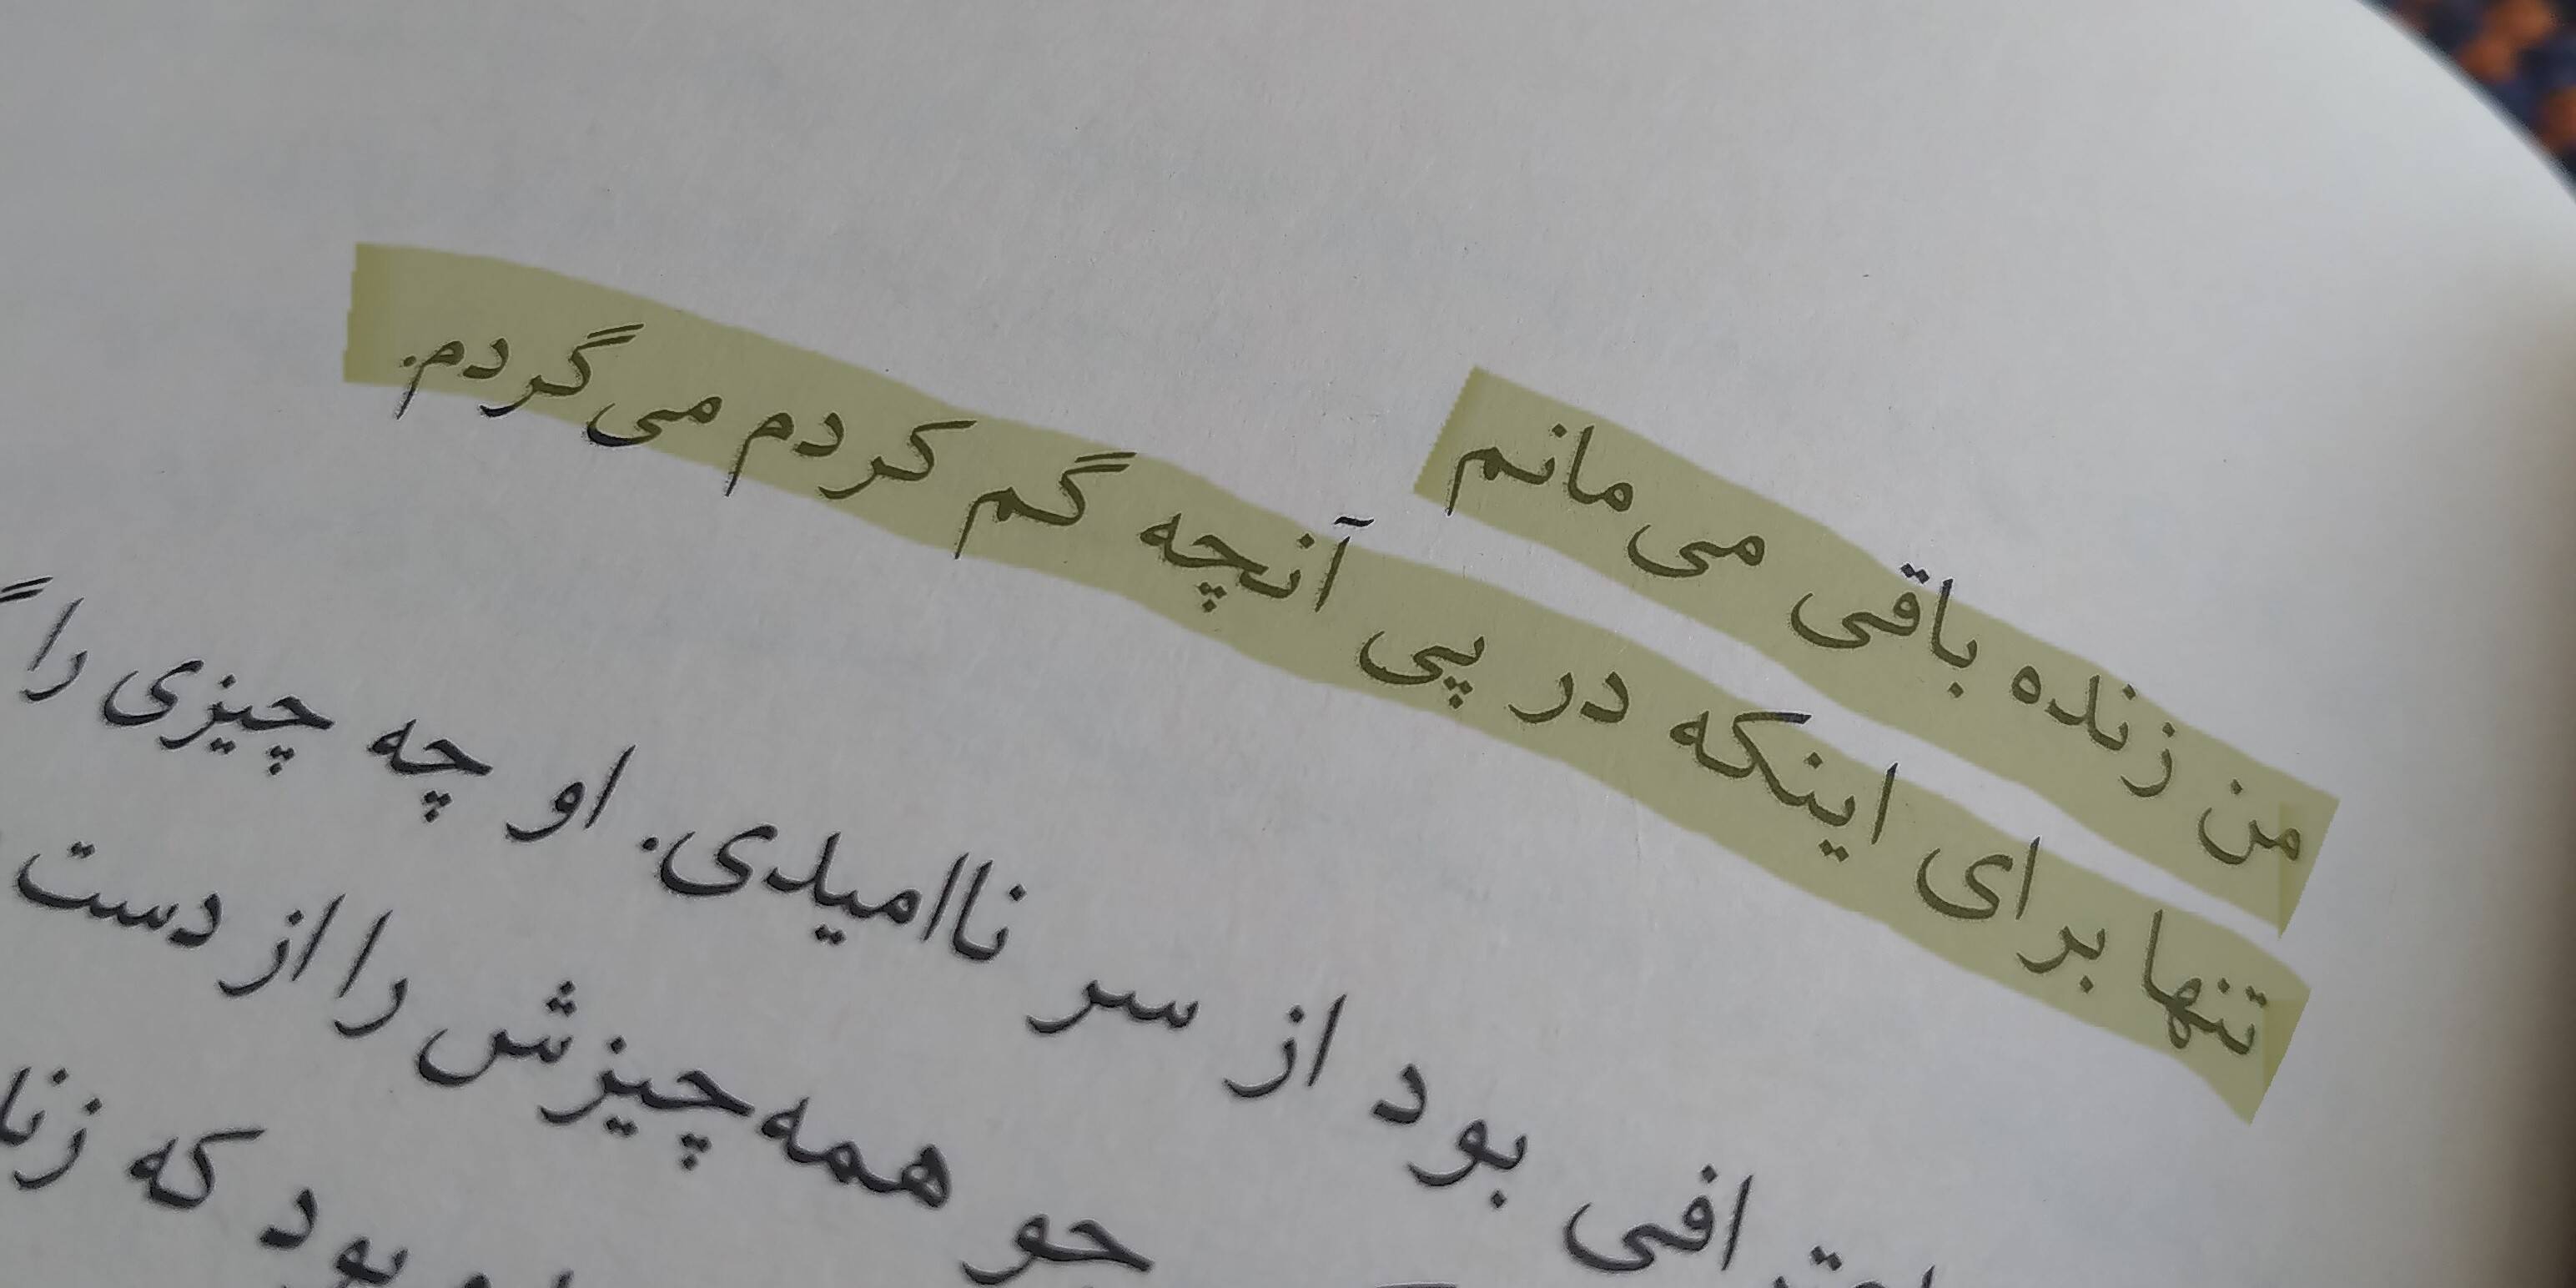 من زنده باقی می‌مانم
تنها برای اینکه در پی آنچه گم کردم می‌گردم.
بود از سر ناامیدی. او چه چیزی را
همه‌چیزش را از دست
بود که